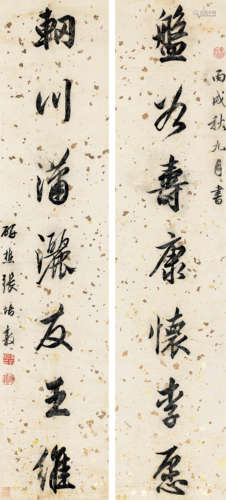 丙戌秋九月書
盤谷壽康懷李愿
輞川瀟灑友王維
研樵張培敦